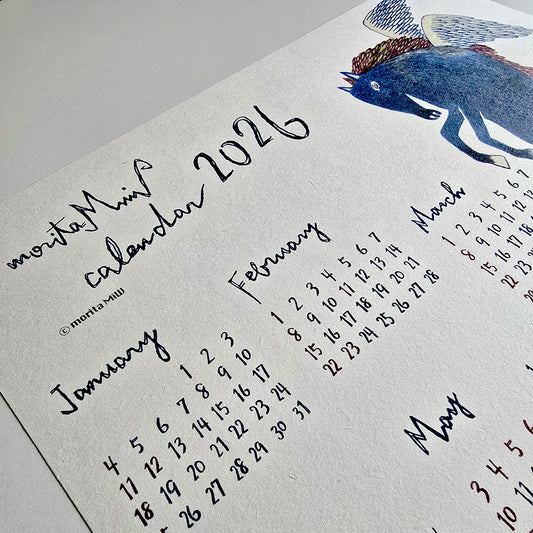 morita MiW
calendar 2026
© morita MiW
January
1 2 3
4 5 6 7 8 9 10
11 12 13 14 15 16 17
18 19 20 21 22 23 24
26 27 28 29 30 31
February
1 2 3 4 5 6 7
8 9 10 11 12 13 14
15 16 17 18 19 20 21
22 23 24 25 26 27 28
March
1 2 3 4 5 6 7
8 9 10 11 12 13
15 16 17 18 19
22 23 24
May
3 4 5 6
10 11 12